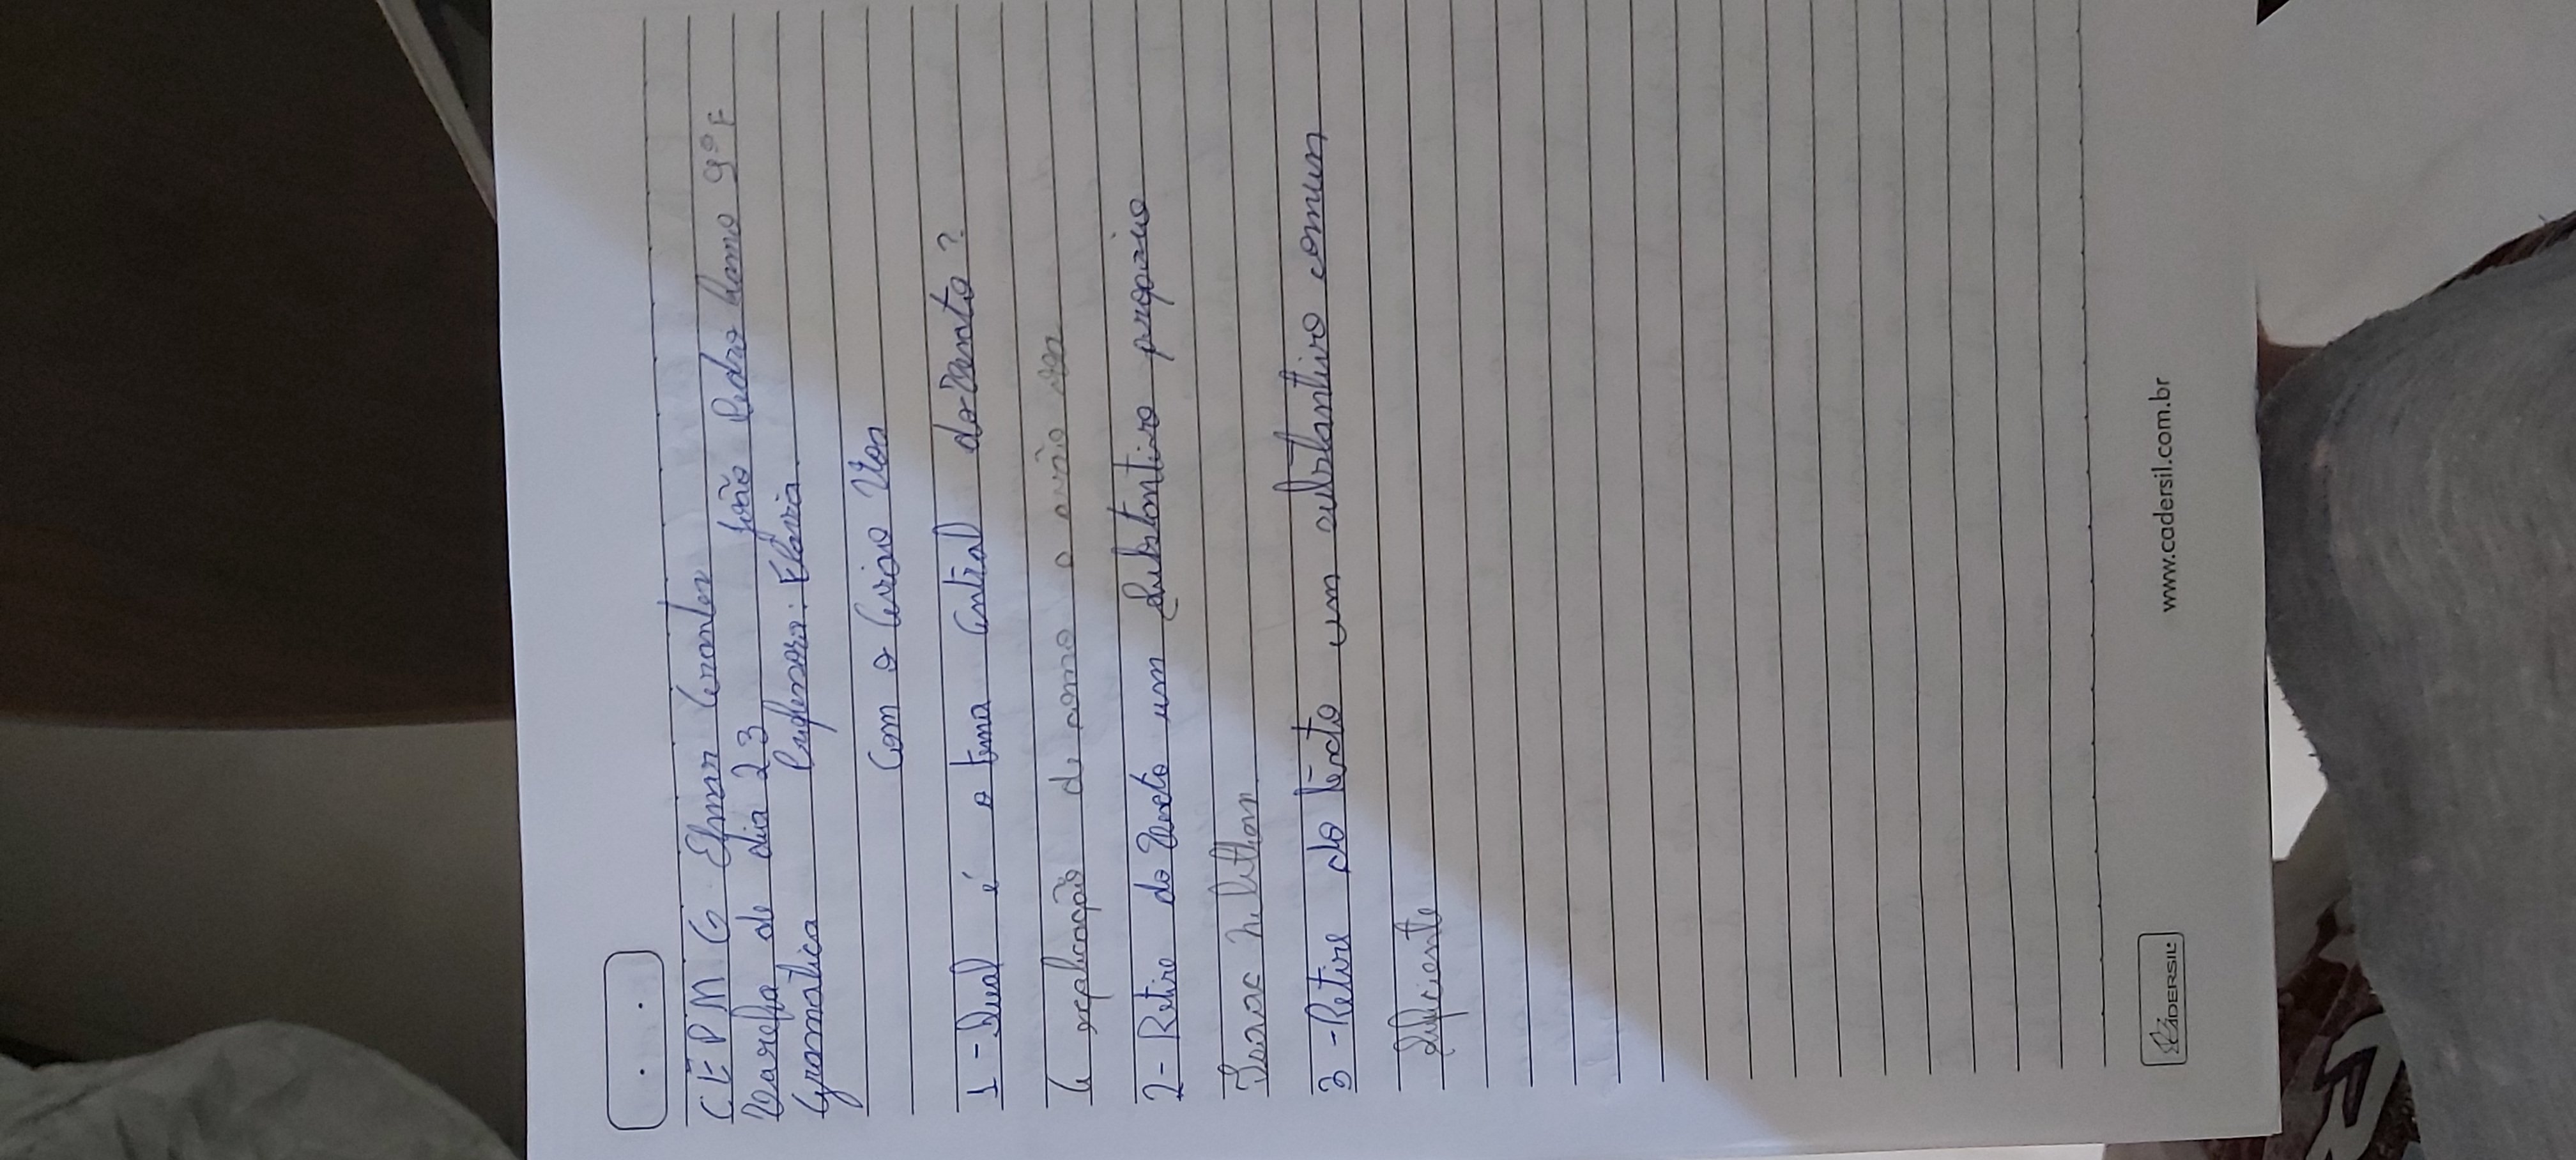 CEPM G Elmar Arantes
Tarefa de dia 23 João Pedro Ramo 9º F
Gramatica Professora: Flavia
Com o Avião Voa
1 - Qual é o tema Central do Texto?
A explicação de como o avião voa
2 - Retire do Texto um Substantivo
Isaac
3 - Retire do têxto um substantivo comun
Suficiente
CADERSIL
www.cadersil.com.br